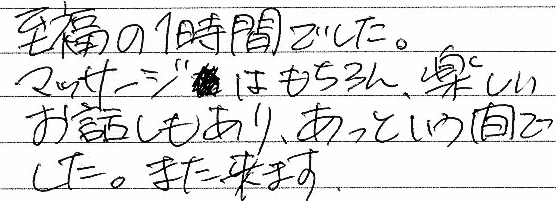 至福の1時間でした。
マッサージはもちろん、楽しい
お話しもあり、あっという間で
した。また来ます.